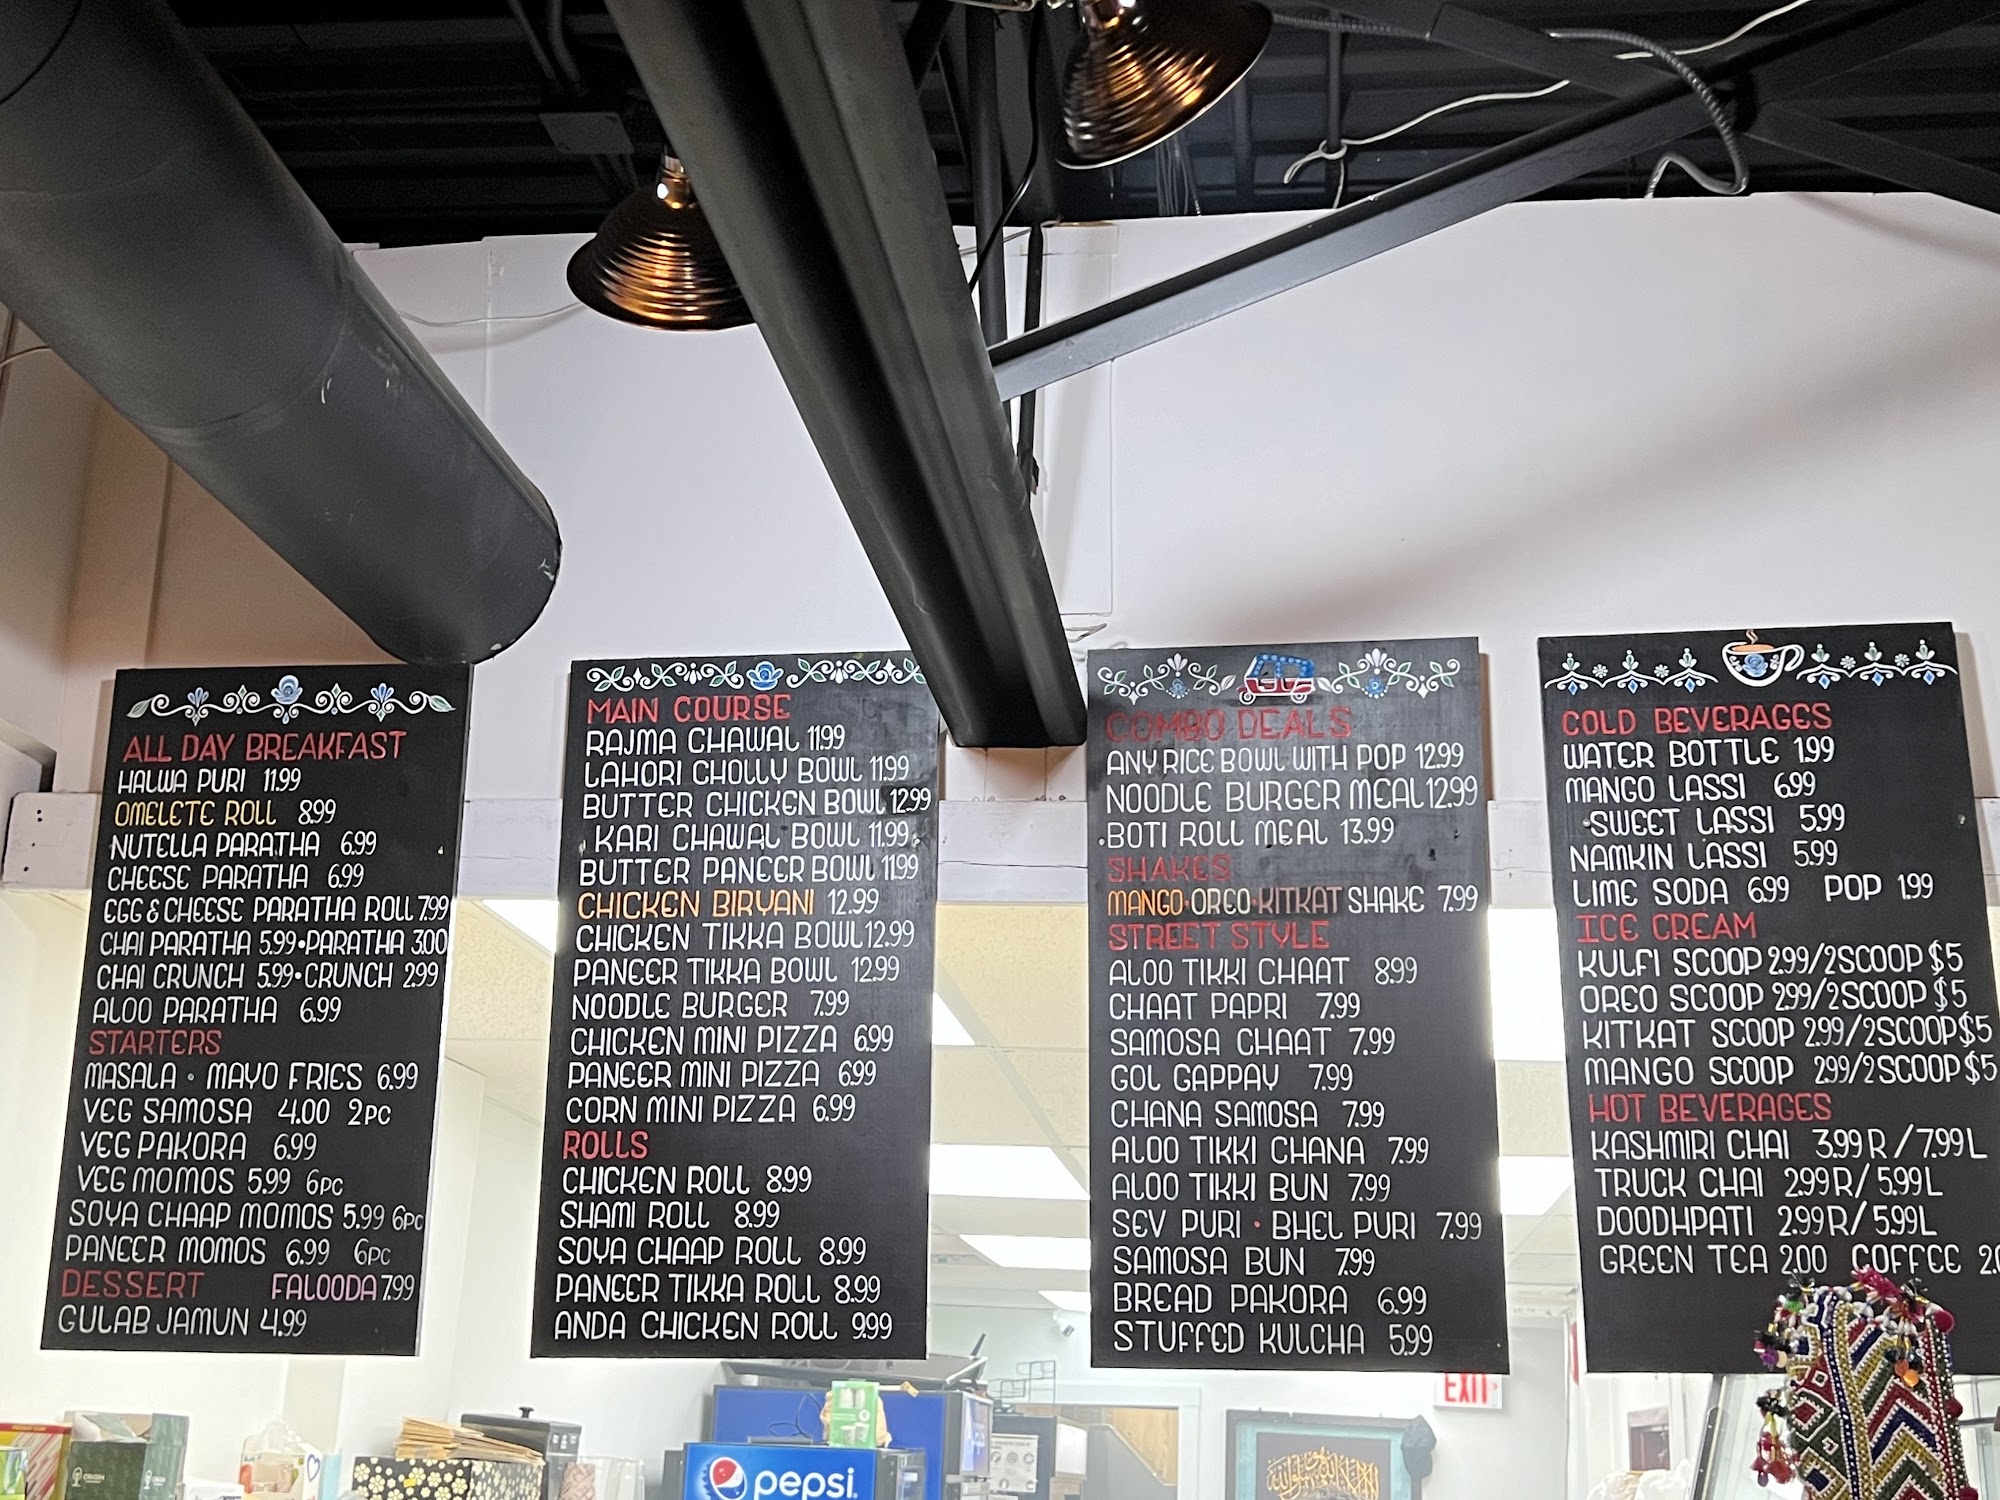 ALL DAY BREAKFAST
HALWA PURI 11.99
OMELETE ROLL 8.99
NUTELLA PARATHA 6.99
CHEESE PARATHA 6.99
EGG & CHEESE PARATHA ROLL 7.99
CHAI PARATHA 5.99•PARATHA 3.00
CHAI CRUNCH 5.99•CRUNCH 2.99
ALOO PARATHA 6.99
STARTERS
MASALA • MAYO FRIES 6.99
VEG SAMOSA 4.00 2PC
VEG PAKORA 6.99
VEG MOMOS 5.99 6PC
SOYA CHAAP MOMOS 5.99 6PC
PANEER MOMOS 6.99 6PC
DESSERT FALOODA 7.99
GULAB JAMUN 4.99
MAIN COURSE
RAJMA CHAWAL 11.99
LAHORI CHOLLY BOWL 11.99
BUTTER CHICKEN BOWL 12.99
KARI CHAWAL BOWL 11.99
BUTTER PANEER BOWL 11.99
CHICKEN BIRYANI 12.99
CHICKEN TIKKA BOWL 12.99
PANEER TIKKA BOWL 12.99
NOODLE BURGER 7.99
CHICKEN MINI PIZZA 6.99
PANEER MINI PIZZA 6.99
CORN MINI PIZZA 6.99
ROLLS
CHICKEN ROLL 8.99
SHAMI ROLL 8.99
SOYA CHAAP ROLL 8.99
PANEER TIKKA ROLL 8.99
ANDA CHICKEN ROLL 9.99
COMBO DEALS
ANY RICE BOWL WITH POP 12.99
NOODLE BURGER MEAL 12.99
BOTI ROLL MEAL 13.99
SHAKES
MANGO•OREO•KITKAT SHAKE 7.99
STREET STYLE
ALOO TIKKI CHAAT 8.99
CHAAT PAPRI 7.99
SAMOSA CHAAT 7.99
GOL GAPPAY 7.99
CHANA SAMOSA 7.99
ALOO TIKKI CHANA 7.99
ALOO TIKKI BUN 7.99
SEV PURI • BHEL PURI 7.99
SAMOSA BUN 7.99
BREAD PAKORA 6.99
STUFFED KULCHA 5.99
COLD BEVERAGES
WATER BOTTLE 1.99
MANGO LASSI 6.99
SWEET LASSI 5.99
NAMKIN LASSI 5.99
LIME SODA 6.99 POP 1.99
ICE CREAM
KULFI SCOOP 2.99/2SCOOP $5
OREO SCOOP 2.99/2SCOOP $5
KITKAT SCOOP 2.99/2SCOOP $5
MANGO SCOOP 2.99/2SCOOP $5
HOT BEVERAGES
KASHMIRI CHAI 3.99 R / 7.99 L
TRUCK CHAI 2.99 R/ 5.99 L
DOODHPATI 2.99 R/ 5.99 L
GREEN TEA 2.00 COFFEE
EXIT
pepsi
ORIGIN